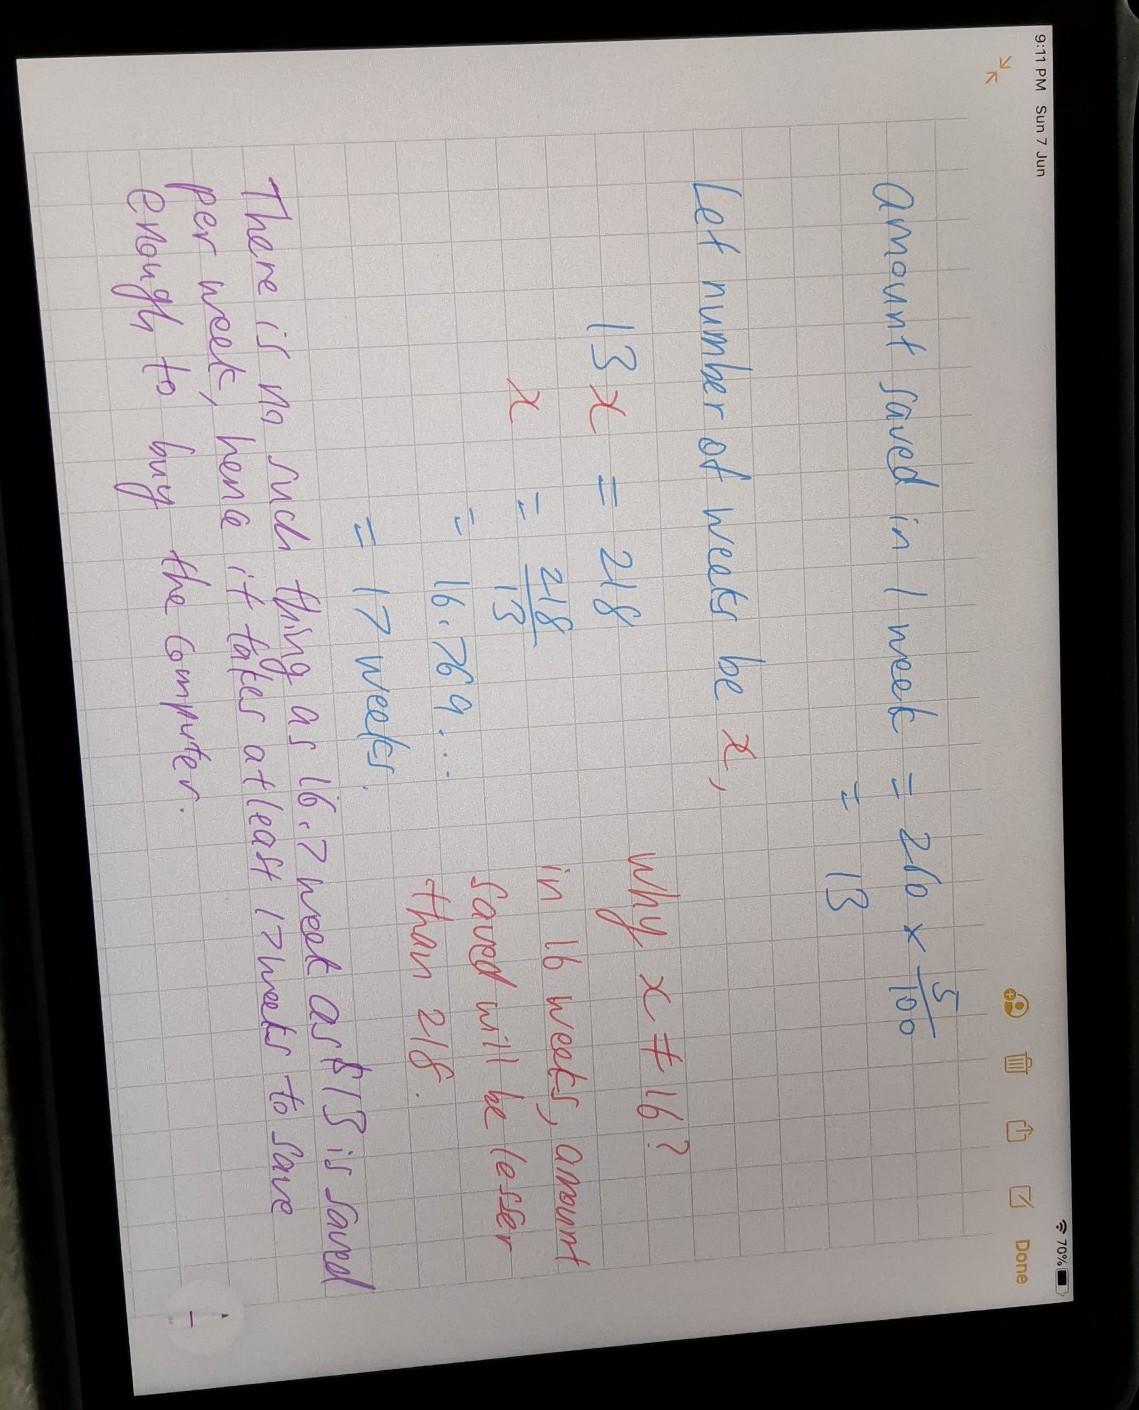 9:11 PM Sun 7 Jun
70%
Done
Amount saved in 1 week = 260 × 5/100
= 13
Let number of weeks be x,
13x = 218
x = 218/13
= 16.769...
= 17 weeks.
Why x ≠ 16?
in 16 weeks, amount
saved will be lesser
than 218.
There is no such thing as 16.7 week as $13 is saved
per week, hence it takes at least 17 weeks to save
enough to buy the computer.